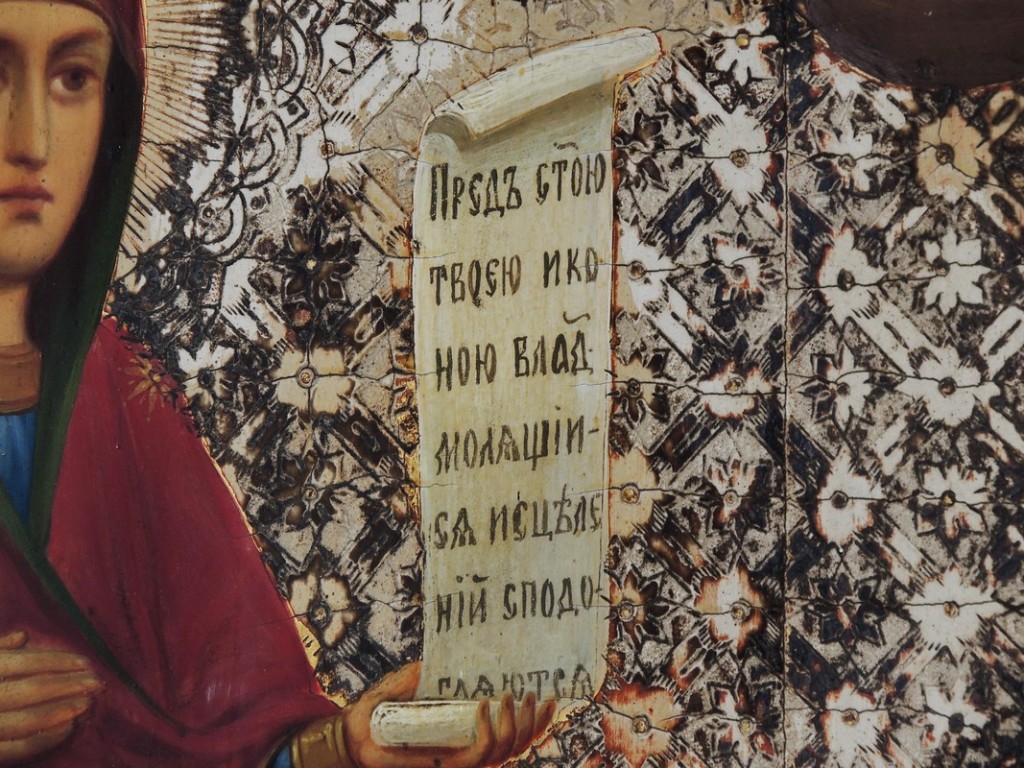 Предъ ст҃ою
твоєю ико-
ною влад҃
молѧщїи-
сѧ исцѣле
нїй сподо-
блѧются